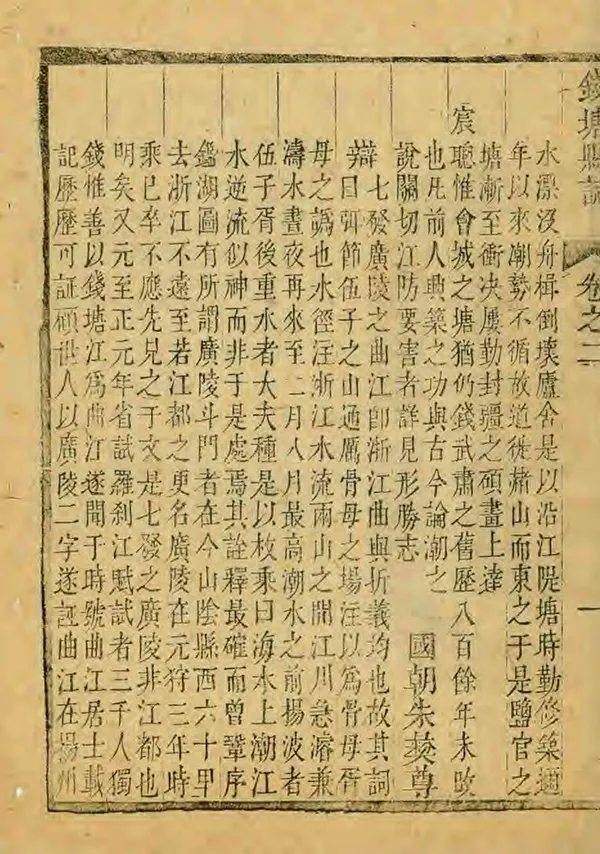 錢塘縣誌 卷之二 一
水漂沒舟楫倒壞廬舍是以沿江隄塘時勤修築邇
年以來潮勢不循故道徙赭山而東之于是鹽官之
塘漸至衝決屢勤封疆之碩畫上達
宸聰惟會城之塘猶仍錢武肅之舊歷八百餘年未改
也凡前人興築之功與古今論潮之
說關切江防要害者詳見形勝志
國朝朱彝尊
辯七發廣陵之曲江卽浙江曲與折義均也故其詞
曰弭節伍子之山通厲骨母之場注以爲骨母胥
母之譌也水徑注浙江水流兩山之間江川急濬兼
濤水晝夜再來至二月八月最高潮水之前揚波者
伍子胥後重水者大夫種是以枚乘曰海水上潮江
水逆流似神而非于是處焉其詮釋最確而曾鞏序
鑑湖圖有所謂廣陵斗門者在今山陰縣西六十里
去浙江不遠至若江都之更名廣陵在元狩三年時
乘已卒不應先見之于文是七發之廣陵非江都也
明矣又元至正元年省試羅剎江賦試者三千人獨
錢惟善以錢塘江爲曲江遂聞于時號曲江居士載
記歷歷可証顧世人以廣陵二字遂誣曲江在揚州